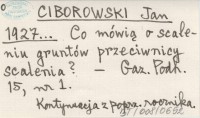 CIBOROWSKI Jan
1927... Co mówią o scale-
niu gruntów przeciwnicy
scalenia? - Gaz. Podh.
15, nr 1.
Kontynuacja z poprz. rocznika.